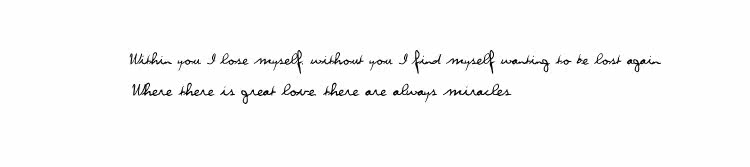 Within you I lose myself, without you I find myself wanting to be lost again
Where there is great love, there are always miracles